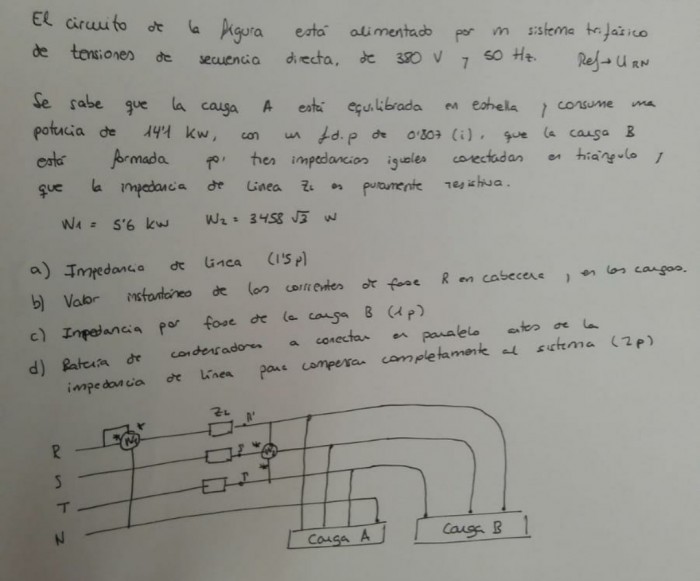 El circuito de la figura está alimentado por un sistema trifásico
de tensiones de secuencia directa, de 380 V y 50 Hz. Ref → U RN
Se sabe que la carga A está equilibrada en estrella y consume una
potencia de 14'1 kW, con un f.d.p de 0'807 (i), que la carga B
está formada por tres impedancias iguales conectadas en triángulo y
que la impedancia de línea ZL es puramente resistiva.
W1 = 5'6 kW W2 = 3458 √3 W
a) Impedancia de línea (1'5 p)
b) Valor instantáneo de las corrientes de fase R en cabecera y en las cargas.
c) Impedancia por fase de la carga B (1 p)
d) Batería de condensadores a conectar en paralelo antes de la
impedancia de línea para compensar completamente el sistema (2 p)
R * * W1 ZL
S * W2
T *
N
Carga A Carga B